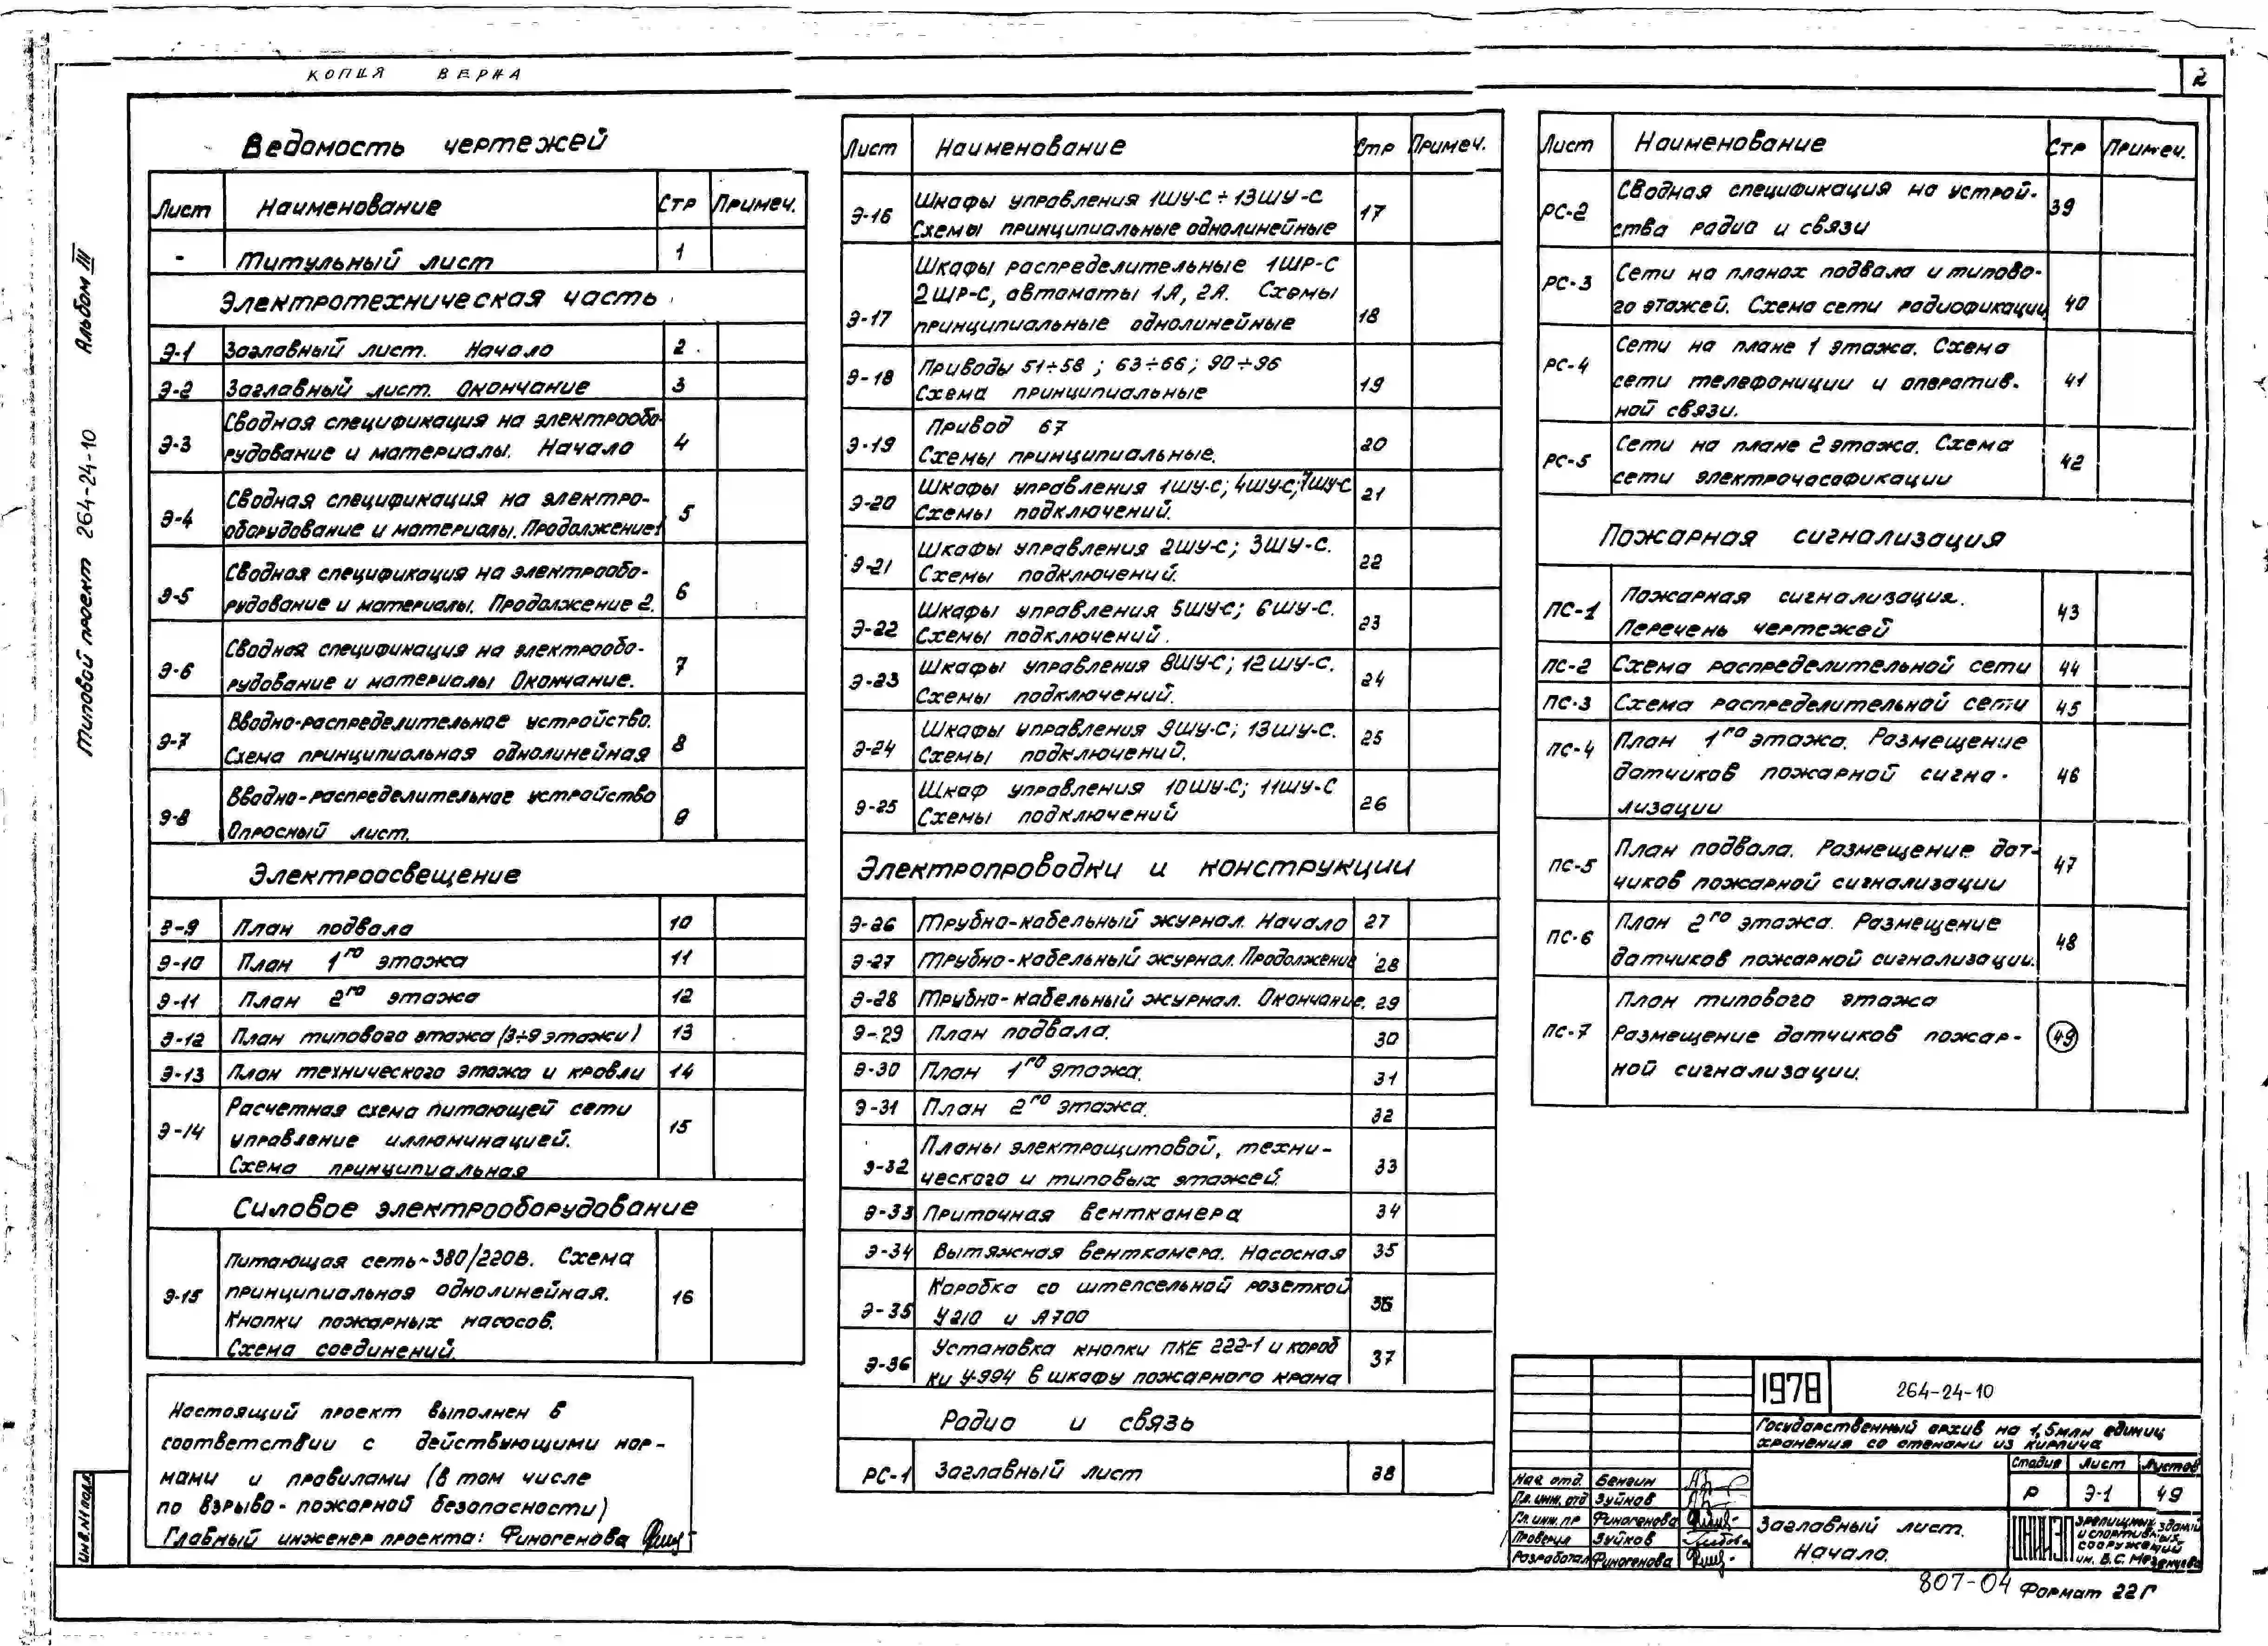 КОПИЯ ВЕРНА
2
Альбом III
Типовой проект 264-24-10
Инв.№ подл
Ведомость чертежей
Лист Наименование Стр Примеч.
- Титульный лист 1
Электротехническая часть
Э-1 Заглавный лист. Начало 2
Э-2 Заглавный лист. Окончание 3
Э-3 Сводная спецификация на электрообо-
рудование и материалы. Начало 4
Э-4 Сводная спецификация на электро-
оборудование и материалы. Продолжение1 5
Э-5 Сводная спецификация на электрообо-
рудование и материалы. Продолжение 2. 6
Э-6 Сводная спецификация на электрообо-
рудование и материалы Окончание. 7
Э-7 Вводно-распределительное устройство.
Схема принципиальная однолинейная 8
Э-8 Вводно-распределительное устройство
Опросный лист. 9
Электроосвещение
Э-9 План подвала 10
Э-10 План 1го этажа 11
Э-11 План 2го этажа 12
Э-12 План типового этажа (3÷9 этажи) 13
Э-13 План технического этажа и кровли 14
Э-14 Расчетная схема питающей сети
управление иллюминацией. 15
Схема принципиальная
Силовое электрооборудование
Питающая сеть~380/220В. Схема
Э-15 принципиальная однолинейная. 16
Кнопки пожарных насосов.
Схема соединений.
Настоящий проект выполнен в
соответствии с действующими нор-
мами и правилами (в том числе
по взрыво-пожарной безопасности)
Главный инженер проекта: Финогенова
Лист Наименование Стр Примеч.
Э-16 Шкафы управления 1ШУ-С÷13ШУ-С 17
Схемы принципиальные однолинейные
Шкафы распределительные 1ШР-С
2ШР-С, автоматы 1А, 2А. Схемы
Э-17 принципиальные однолинейные 18
Э-18 Приводы 51÷58; 63÷66; 90÷96
Схема принципиальные 19
Привод 67
Э-19 Схемы принципиальные. 20
Э-20 Шкафы управления 1ШУ-С; 4ШУ-С; 7ШУ-С 21
Схемы подключений.
Э-21 Шкафы управления 2ШУ-С; 3ШУ-С. 22
Схемы подключений.
Э-22 Шкафы управления 5ШУ-С; 6ШУ-С. 23
Схемы подключений.
Э-23 Шкафы управления 8ШУ-С; 12ШУ-С. 24
Схемы подключений.
Э-24 Шкафы управления 9ШУ-С; 13ШУ-С. 25
Схемы подключений.
Э-25 Шкаф управления 10ШУ-С; 11ШУ-С 26
Схемы подключений
Электропроводки и конструкции
Э-26 Трубно-кабельный журнал. Начало 27
Э-27 Трубно-кабельный журнал. Продолжение 28
Э-28 Трубно-кабельный журнал. Окончание. 29
Э-29 План подвала. 30
Э-30 План 1го этажа. 31
Э-31 План 2го этажа. 32
Э-32 Планы электрощитовой, техни-
ческого и типовых этажей. 33
Э-33 Приточная венткамера 34
Э-34 Вытяжная венткамера. Насосная 35
Э-35 Коробка со штепсельной розеткой
У210 и А700 36
Э-36 Установка кнопки ПКЕ 222-1 и короб
ки У-994 в шкафу пожарного крана 37
Радио и связь
РС-1 Заглавный лист 38
Лист Наименование Стр Примеч.
РС-2 Сводная спецификация на устрой- 39
ства радио и связи
РС-3 Сети на планах подвала и типово-
го этажей. Схема сети радиофикации 40
РС-4 Сети на плане 1 этажа. Схема
сети телефониции и оператив- 41
ной связи.
РС-5 Сети на плане 2 этажа. Схема
сети электрочасофикации 42
Пожарная сигнализация
ПС-1 Пожарная сигнализация.
Перечень чертежей 43
ПС-2 Схема распределительной сети 44
ПС-3 Схема распределительной сети 45
ПС-4 План 1го этажа. Размещение
датчиков пожарной сигна- 46
лизации
ПС-5 План подвала. Размещение дат-
чиков пожарной сигнализации 47
ПС-6 План 2го этажа. Размещение
датчиков пожарной сигнализации. 48
План типового этажа
ПС-7 Размещение датчиков пожар- 49
ной сигнализации.
1978 264-24-10
Государственный архив на 1,5млн единиц
хранения со стенами из кирпича
Стадия Лист Листов
Р Э-1 49
Нач отд. Бенгин
Гл. инж. отд Зуйков
Гл. инж. пр Финогенова
Проверил Зуйков
Разработал Финогенова
Заглавный лист.
Начало.
ЦНИИЭП зрелищных зданий
и спортивных
сооружений
им. Б.С. Мезенцева
807-04 Формат 22Г